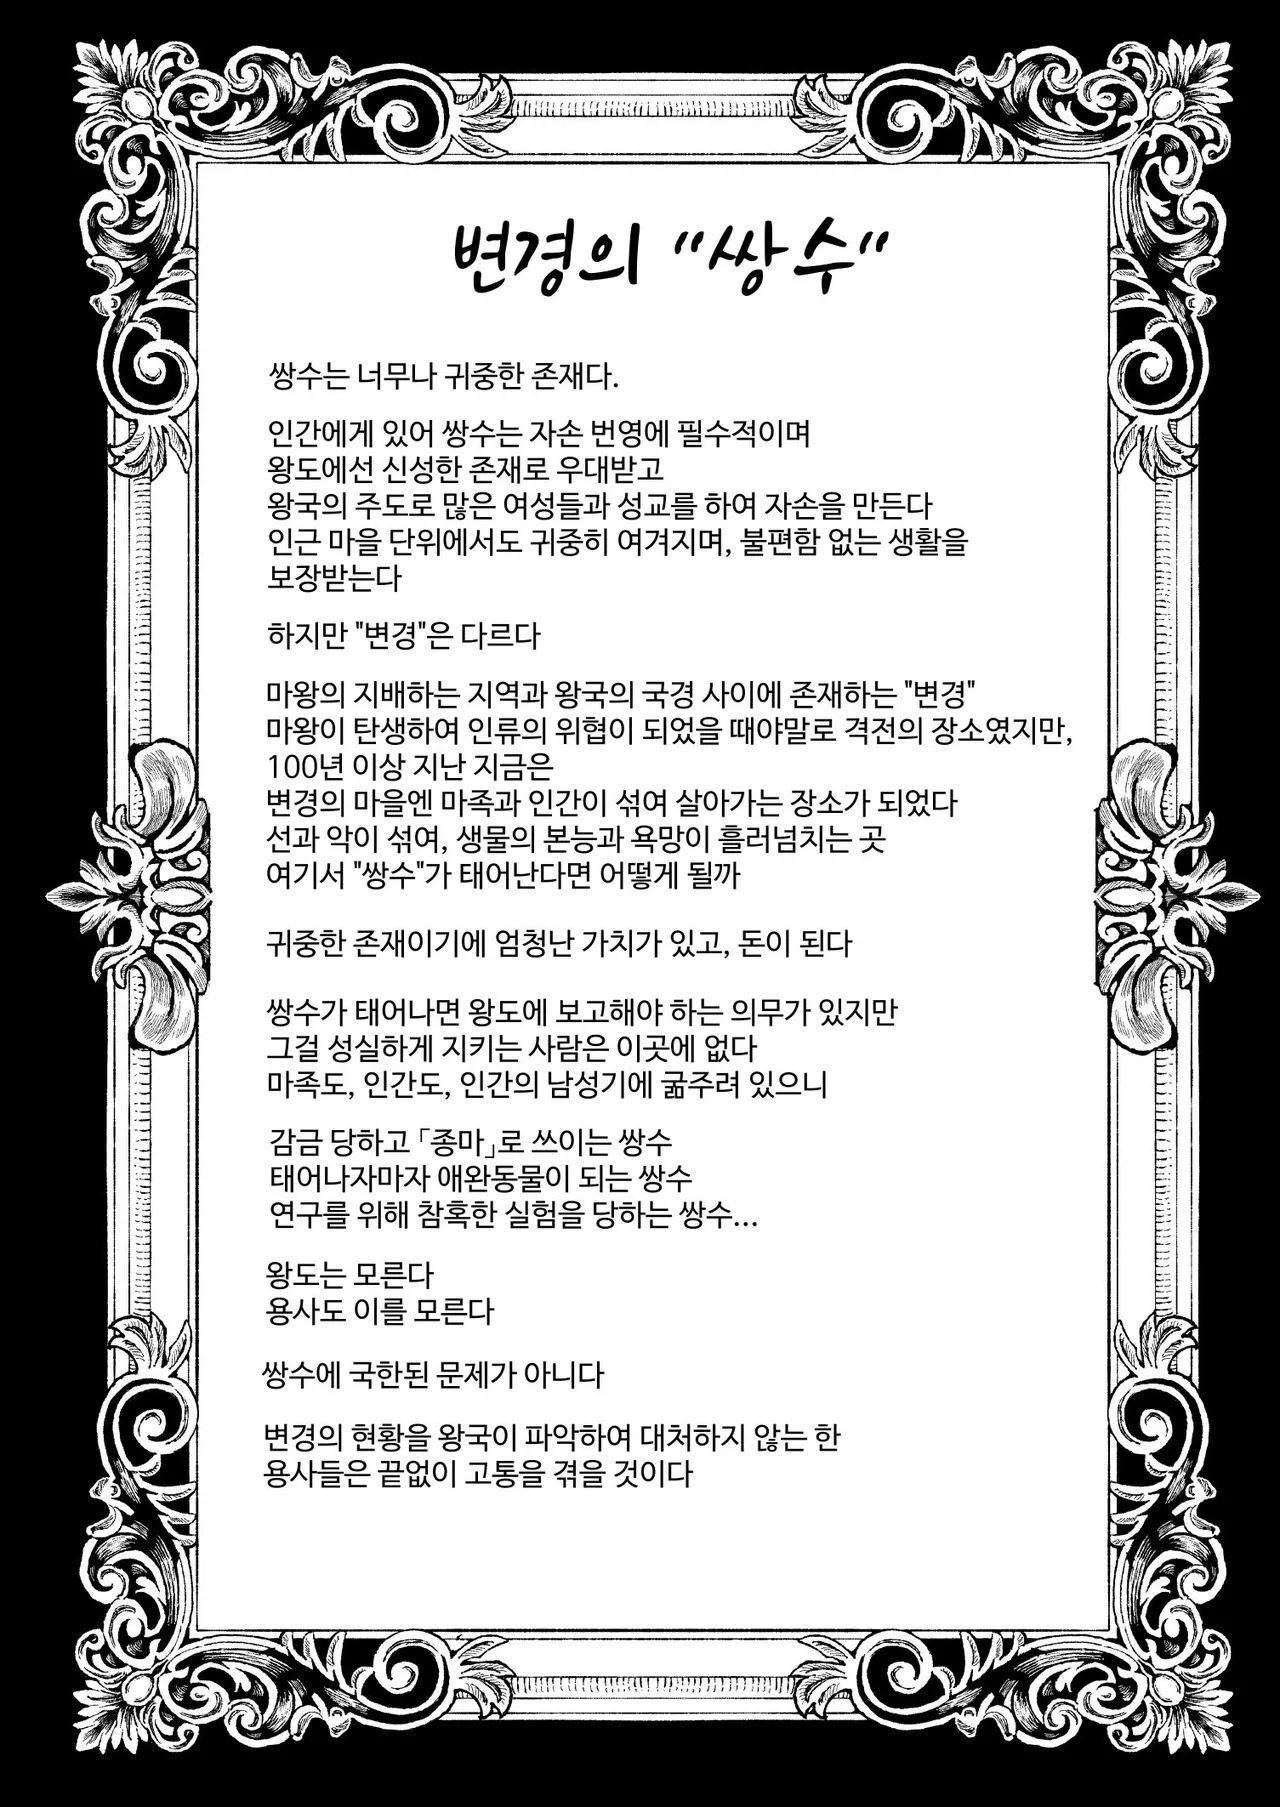 변경의 "쌍수"
쌍수는 너무나 귀중한 존재다.
인간에게 있어 쌍수는 자손 번영에 필수적이며
왕도에선 신성한 존재로 우대받고
왕국의 주도로 많은 여성들과 성교를 하여 자손을 만든다
인근 마을 단위에서도 귀중히 여겨지며, 불편함 없는 생활을
보장받는다
하지만 "변경"은 다르다
마왕의 지배하는 지역과 왕국의 국경 사이에 존재하는 "변경"
마왕이 탄생하여 인류의 위협이 되었을 때야말로 격전의 장소였지만,
100년 이상 지난 지금은
변경의 마을엔 마족과 인간이 섞여 살아가는 장소가 되었다
선과 악이 섞여, 생물의 본능과 욕망이 흘러넘치는 곳
여기서 "쌍수"가 태어난다면 어떻게 될까
귀중한 존재이기에 엄청난 가치가 있고, 돈이 된다
쌍수가 태어나면 왕도에 보고해야 하는 의무가 있지만
그걸 성실하게 지키는 사람은 이곳에 없다
마족도, 인간도, 인간의 남성기에 굶주려 있으니
감금 당하고 「종마」로 쓰이는 쌍수
태어나자마자 애완동물이 되는 쌍수
연구를 위해 참혹한 실험을 당하는 쌍수...
왕도는 모른다
용사도 이를 모른다
쌍수에 국한된 문제가 아니다
변경의 현황을 왕국이 파악하여 대처하지 않는 한
용사들은 끝없이 고통을 겪을 것이다